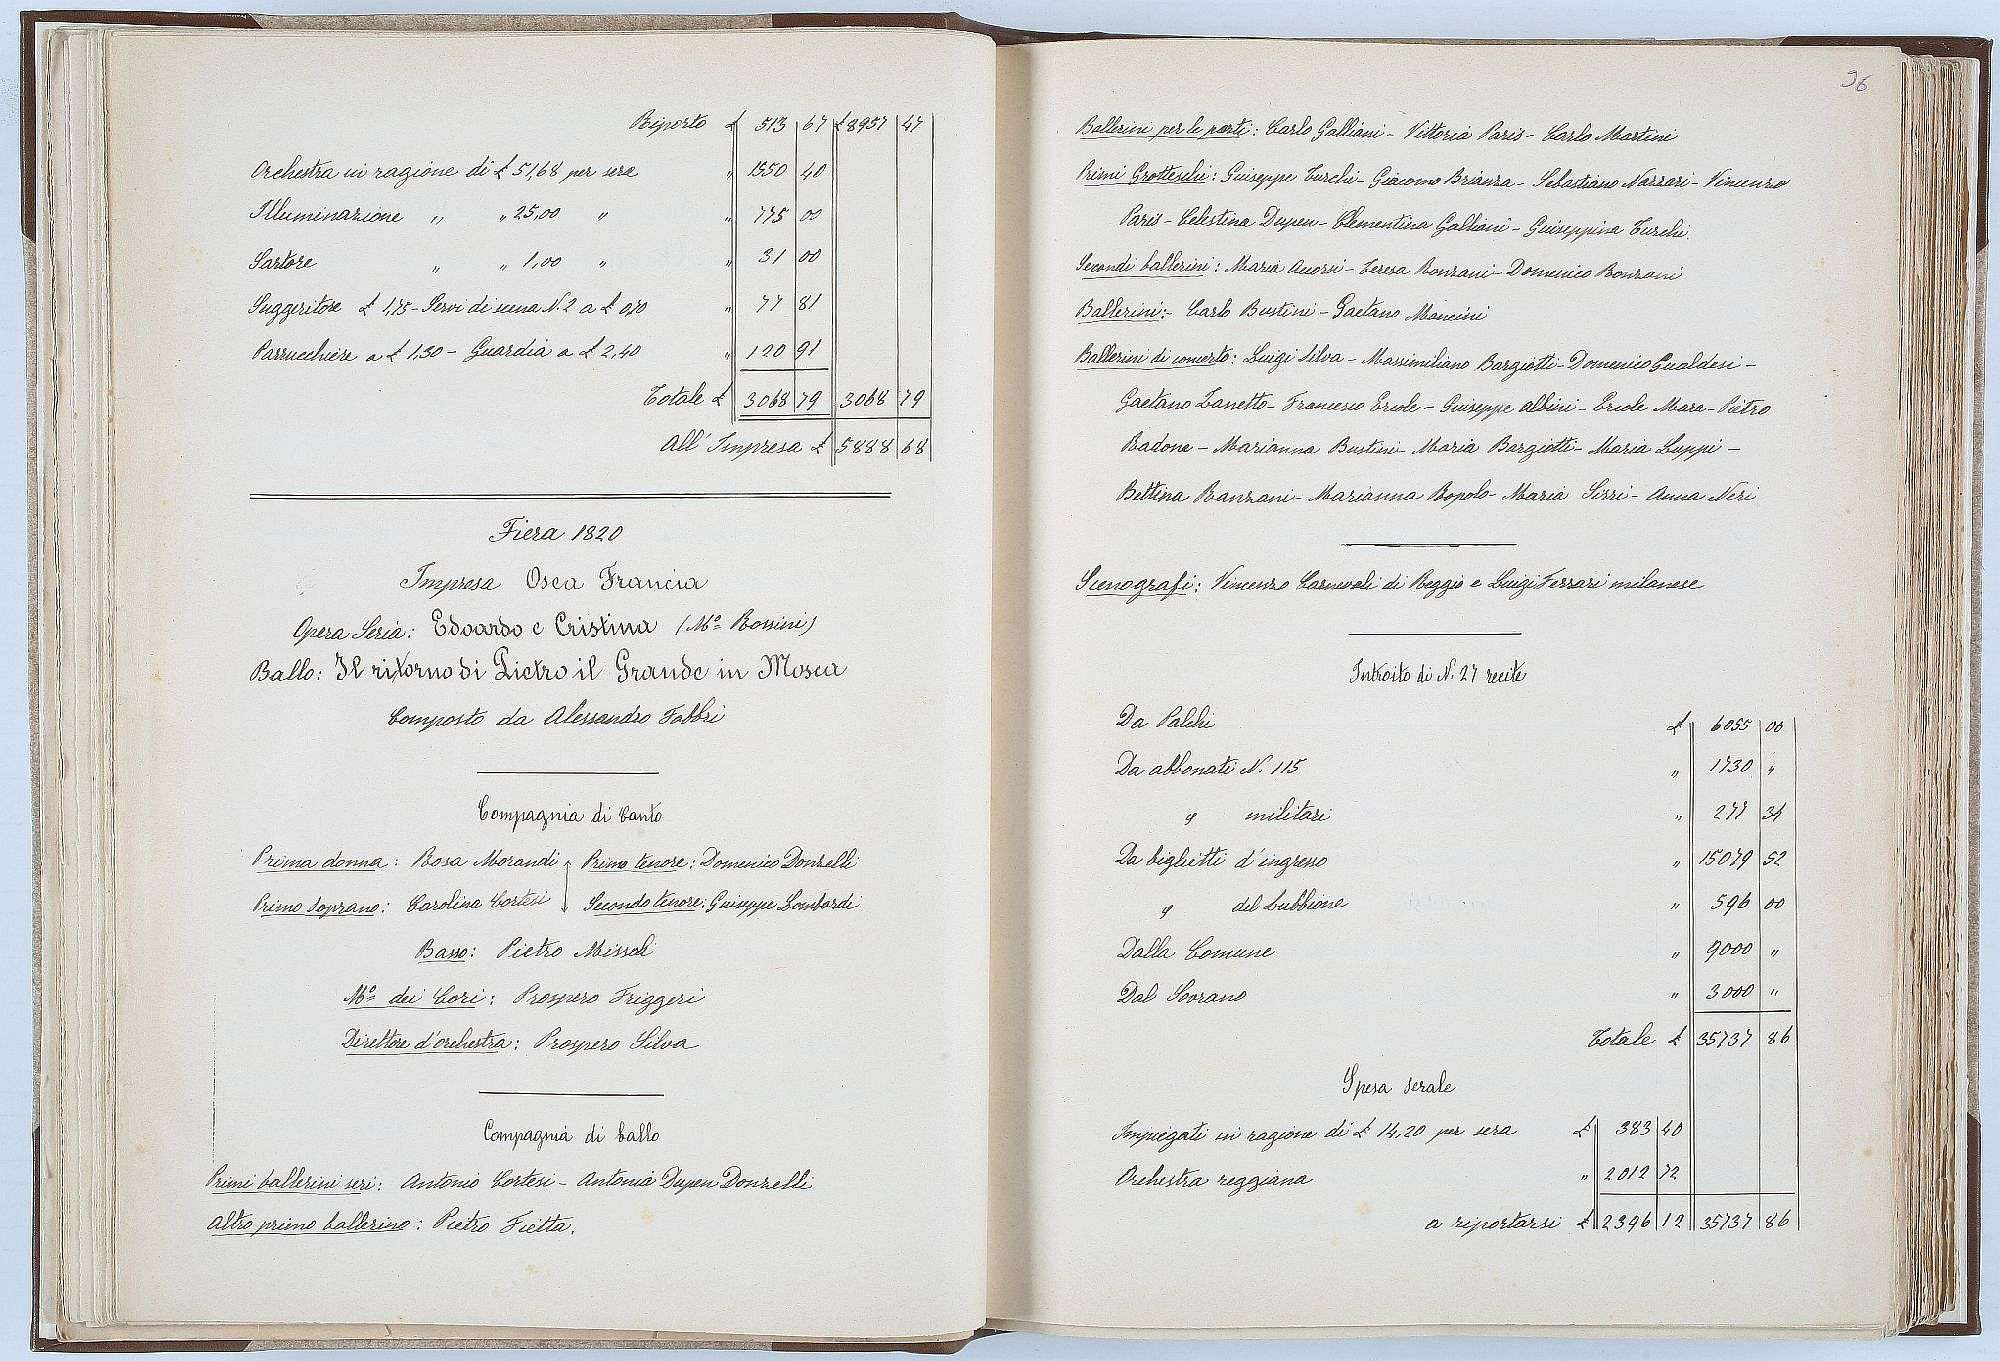 Riporto £ 513 67 £ 8957 47
Orchestra in ragione di £ 51,68 per sera " 1550 40
Illuminazione " " 25,00 " " 775 00
Sartore " " 1,00 " " 31 00
Suggeritore £ 1,75 - Servi di scena N. 2 a £ 0,70 " 77 81
Parrucchiere a £ 1,30 - Guardia a £ 2,40 " 120 91
Totale £ 3068 79 3068 79
All' Impresa £ 5888 68
Fiera 1820
Impresa Osea Francia
Opera Seria: Edoardo e Cristina (Mº Rossini)
Ballo: Il ritorno di Pietro il Grande in Mosca
Composto da Alessandro Fabbri
Compagnia di Canto
Prima donna: Rosa Morandi Primo tenore: Domenico Donzelli
Primo Soprano: Carolina Cortesi Secondo tenore: Guiseppe Lombardi
Basso: Pietro Missoli
Mº dei Cori: Prospero Friggeri
Direttore d'orchestra: Prospero Silva
Compagnia di ballo
Primi ballerini seri: Antonio Cortesi - Antonia Dupen Donzelli
Altro primo ballerino: Pietro Fietta.
96
Ballerini per le parti: Carlo Galliani - Vittoria Paris - Carlo Martini
Primi Grotteschi: Guiseppe Turchi - Giacomo Brianza - Sebastiano Nazzari - Vincenzo
Paris - Celestina Dupen - Clementina Galliani - Guiseppina Turchi.
Secondi ballerini: Maria - Teresa Bonzani - Domenico Bonzani
Ballerini: - Carlo Bustini - Gaetano Mancini
Ballerini di concerto: Luigi Silva - Massimiliano Bargiotti - Domenico Gualdesi -
Gaetano Zanetto - Francesco Ercole - Guiseppe Albini - Ercole Mara - Pietro
Radone - Marianna Bustini - Maria Bargiotti - Maria Luppi -
Bettina Banzani - Marianna Bopolo - Maria Sizzi - Anna Neri
Scenografi: Vincenzo Carnevali di Reggio e Luigi Ferrari milanese
Introito di N. 27 recite
Da Palchi £ 6055 00
Da abbonati N. 115 " 1730 "
" militari " 277 34
Da biglietti d'ingresso " 15079 52
" del Lubbione " 596 00
Dalla Comune " 9000 "
Dal Sovrano " 3000 "
Totale £ 35737 86
Spesa Serale
Impiegati in ragione di £ 14,20 per sera £ 383 40
Orchestra reggiana " 2012 72
a riportarsi £ 2396 12 35737 86